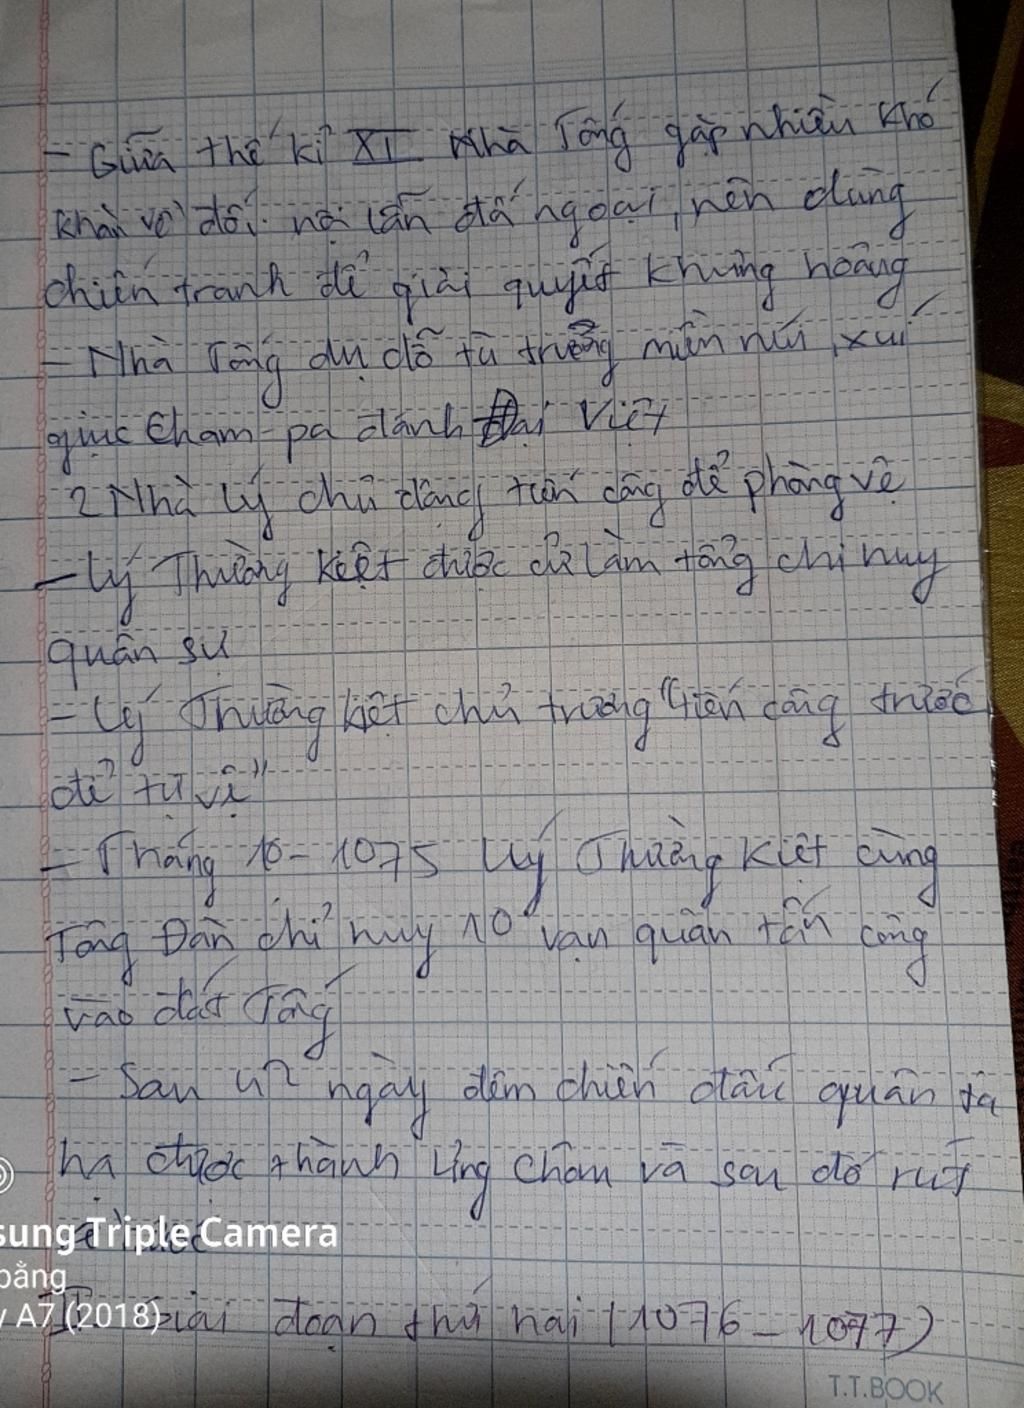 - Giữa thế kỉ XI Nhà Tống gặp nhiều khó
khăn về đối nội lẫn đối ngoại, nên dùng
chiến tranh để giải quyết khủng hoảng
- Nhà Tống dụ dỗ tù trưởng miền núi, xúi
giục Cham-pa đánh Đại Việt
2 Nhà Lý chủ động tiến công để phòng vệ
- Lý Thường Kiệt được cử làm tổng chỉ huy
quân sự
- Lý Thường Kiệt chủ trương "tiến công trước
để tự vệ"
- Tháng 10-1075 Lý Thường Kiệt cùng
Tông Đản chỉ huy 10 vạn quân tấn công
vào đất Tống
- Sau 42 ngày đêm chiến đấu quân ta
hạ được thành Ung Châm và sau đó rút
sung Triple Camera
bằng
A7 (2018)
giai đoạn thứ hai (1076-1077)
T.T.BOOK